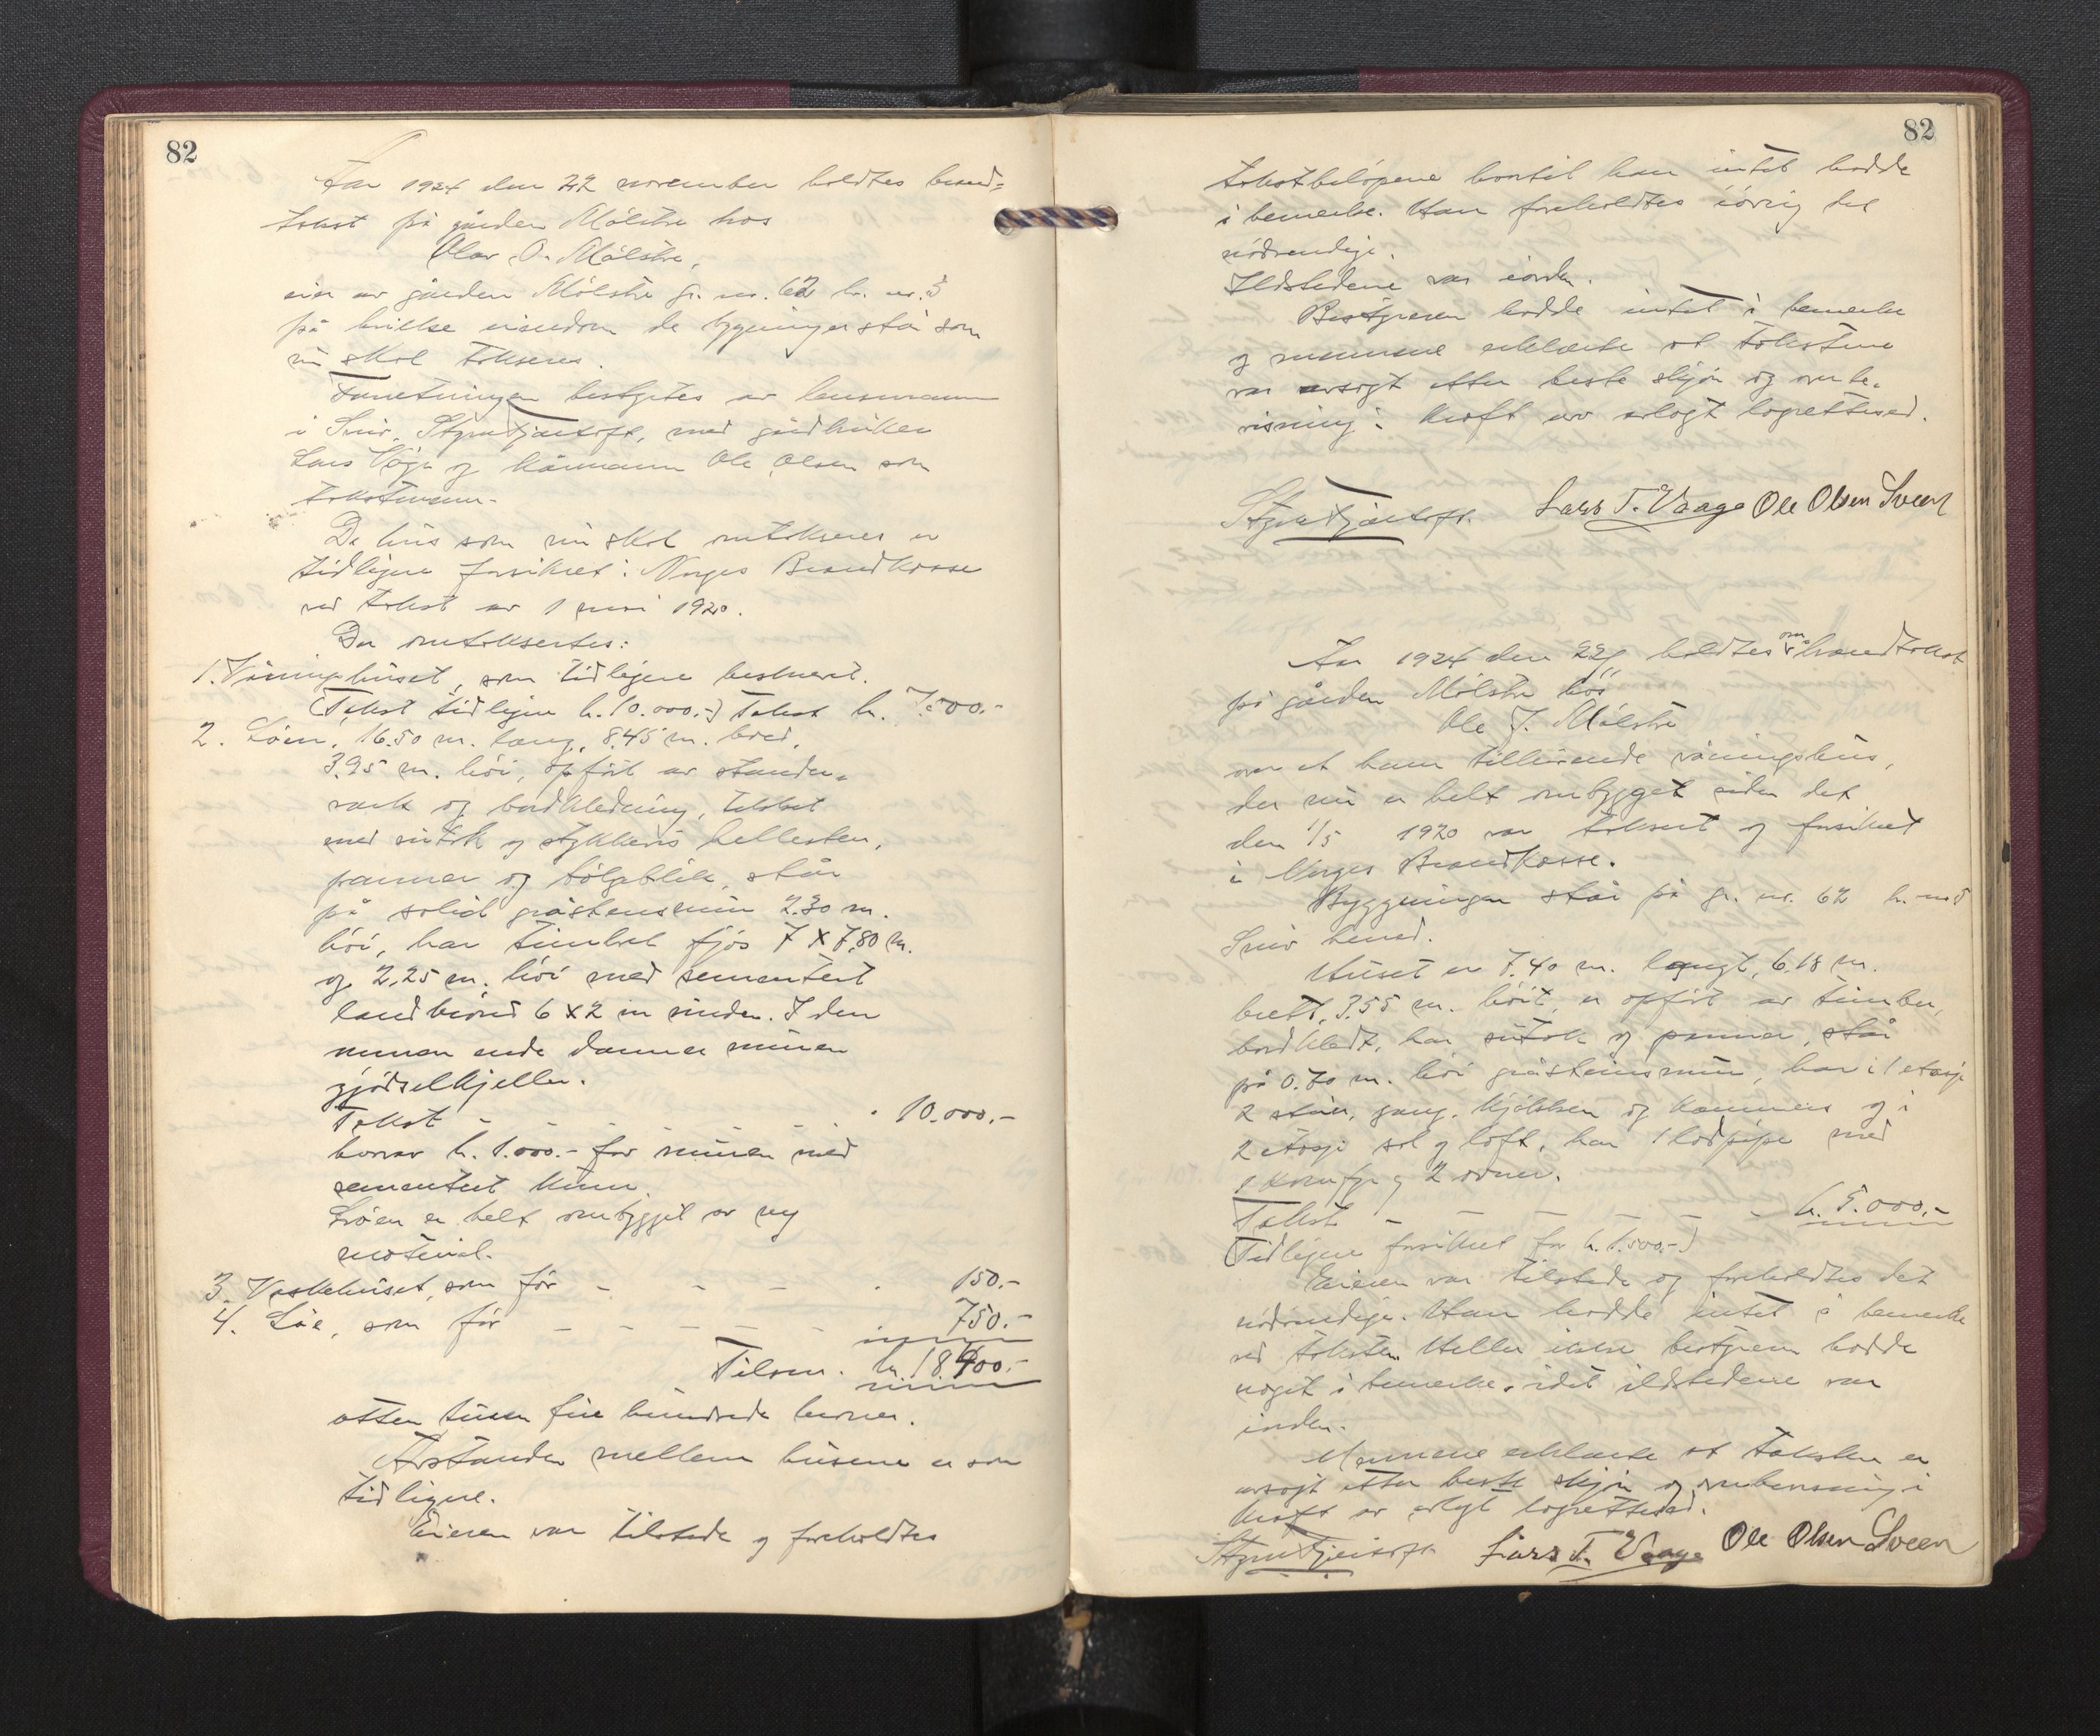 82
Aar 1924 den 22 november holdtes brand-
takst på gården Mölstre hos
Olav O. Mölstre,
eier av gården Mölstre gr. nr. 62 br. nr. 3
på hvilke eiendom de bygninger står som
nu skal takseres.
Forretningen bestyrtes av lensmann
i Sveio, Styrk Fjærtoft, med gårdbruker
Lars Våge og kårmann Ole Olsen som
takstmenn.
De hus som nu skal omtakseres er
tidligere forsikret i Norges Brandkasse
ved takst av 1 mai 1920.
Der omtaksertes:
1. Våningshuset, som tidligere beskrevet.
(Takst tidligere kr. 10.000.-) Takst kr. 7.500.-
2. Löen, 16.50 m. lang, 8.45 m. bred,
3.95 m. höi, opfört av stander-
verk og bordkledning, tekket
med sutak og stykkevis hellesten,
panner og bölgeblik, står
på solid gråstensmur 2.30 m.
höi, har timbret fjös 7 X 7,80 m.
og 2.25 m. höi med sementert
landbrönd 6 X 2 m under. I den
annen ende danner muren
gjödselkjeller.
Takst - - - - 10.000.-
hvorav kr. 1.000.- for muren med
sementert kum.
Löen er helt ombygget av ny
material.
3. Vaskehuset, som för - - - 150.-
4. Löe, som för - - - - - 750.-
Tilsam. kr. 18400.-
atten tusen fire hundrede kroner.
Avstanden mellem husene er som
tidligere.
Eieren var tilstede og foreholdtes
82
takstbelöpene hvortil han intet hadde
å bemerke. Han foreholdtes iövrig det
nödvendige.
Ildstedene var iorden.
Bestyreren hadde intet å bemerke
og mennene erklærte at takstene
var avsagt efter beste skjön og overbe-
visning i kraft av avlagt lagrettesed.
Styrk Fjærtoft. Lars T. Vaage Ole Olsen Sveen
Aar 1924 den 22/11 holdtes om brandtakst
på gården Mölstre hos
Ole J. Mölstre
over et ham tilhörende våningshus,
der nu er helt ombygget siden det
den 1/5 1920 var taksert og forsikret
i Norges Brandkasse.
Bygningen står på gr. nr. 62 br. nr. 5
Sveio herred.
Huset er 7.40 m. langt, 6.18 m.
bredt, 3.55 m. höit, er opfört av timber,
bordkledt, har sutak og panner, står
på 0.70 m. höi gråsteinsmur, har i 1 etasje
2 stuer, gang, kjökken og kammers og i
2 etasje sal og loft, har 1 lodpipe med
1 komfyr og 2 ovner.
Takst - - - - - - kr. 5.000.-
(Tidligere forsikret for kr. 1.500.-)
Eieren var tilstede og foreholdtes det
nödvendige. Han hadde intet å bemerke
ved taksten. Heller ikke bestyreren hadde
noget å bemerke, idet ildstedene var
iorden.
Mennene erklærte at taksten er
avsagt efter beste skjön og overbevisning i
kraft av avlagt lagrettesed.
Styrk Fjærtoft Lars T. Vaage Ole Olsen Sveen